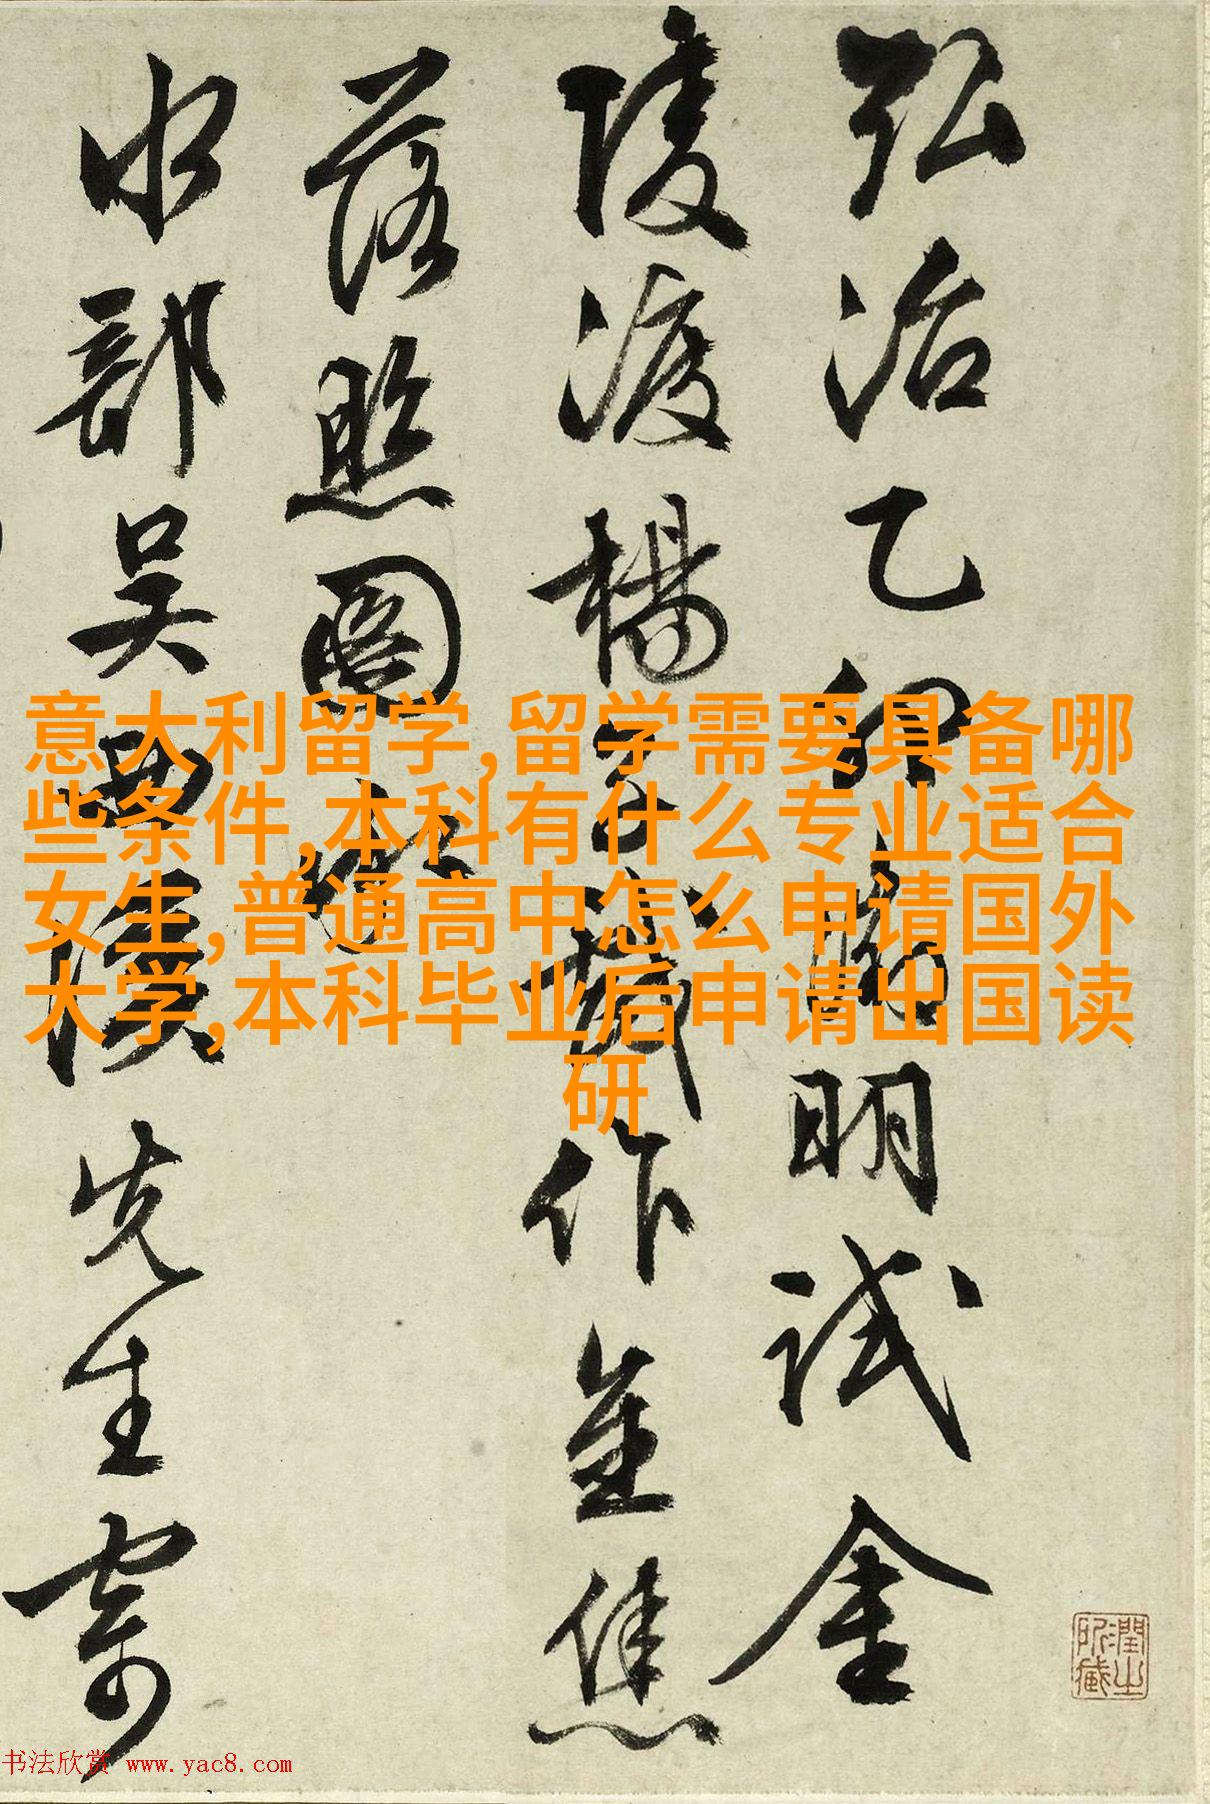 弘治乙卯徵明試金
陵渡楊子戲作金焦
落照圖
水部吳西溪先生寄
意大利留学,留学需要具备哪
些条件,本科有什么专业适合
女生,普通高中怎么申请国外
大学,本科毕业后申请出国读
研
潤之所藏
书法欣赏 www.yac8.com